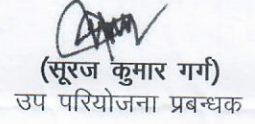 (सूरज कुमार गर्ग)
उप परियोजना प्रबन्धक